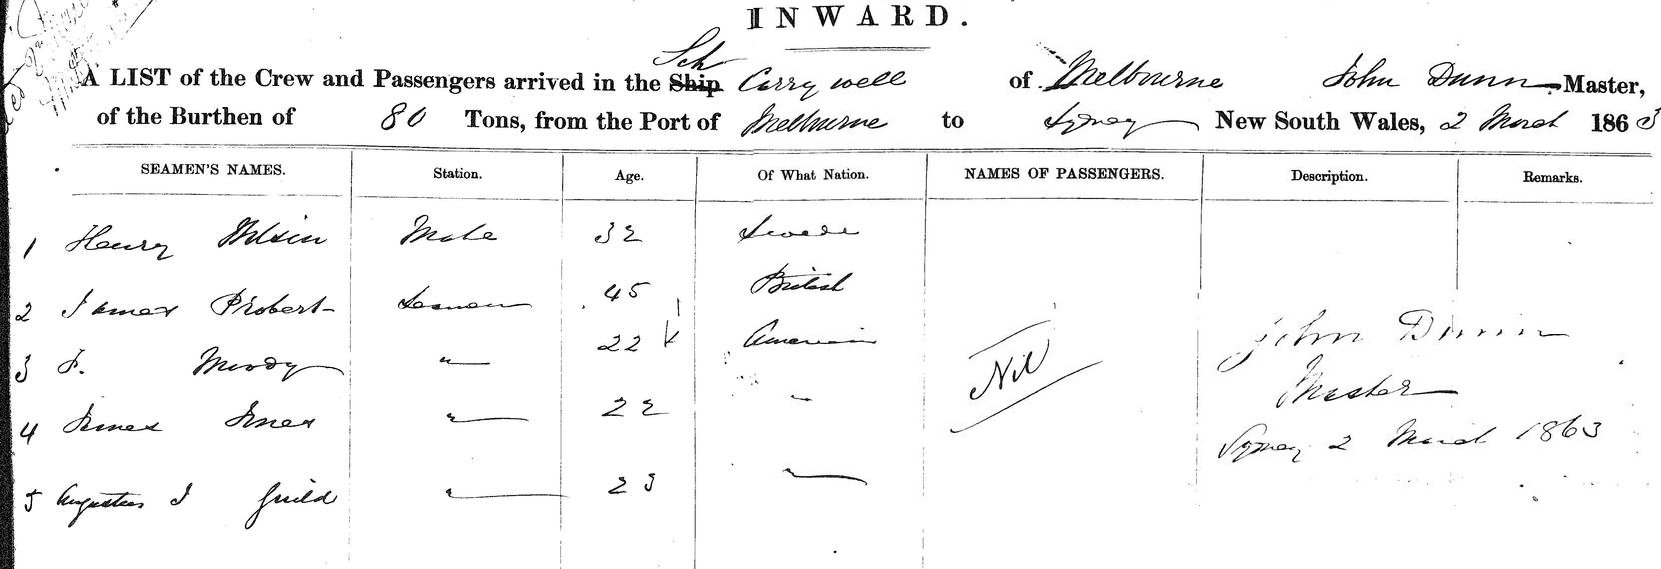 INWARD.
Sch
A LIST of the Crew and Passengers arrived in the Ship Carry well of Melbourne John Dunn Master,
of the Burthen of 80 Tons, from the Port of Melbourne to Sydney New South Wales, 2 March 1863
SEAMEN'S NAMES. Station. Age. Of What Nation. NAMES OF PASSENGERS. Description. Remarks.
1 Henry Mate 32 Swede
2 James Probert Seaman 45 British
3 F. Moody " 22 American
4 James Jones " 22 "
5 Augustus J Guild " 23 "
Nil
John Dunn
Master
Sydney 2 March 1863